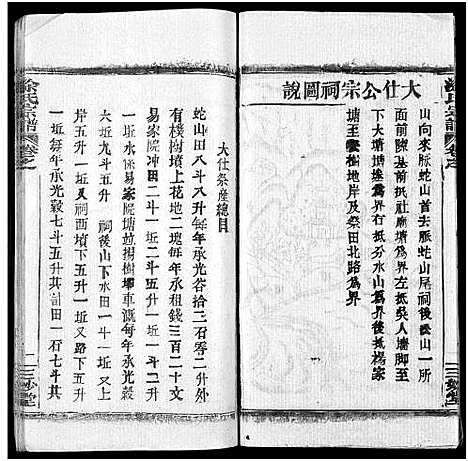 大仕公宗祠圖說
山向來脈蛇山首去脈蛇山尾祠後松山一所
面前陂塘抵社廟塘爲界左抵吳人塘角上至
下次大路爲界右抵分水山爲界前抵楊家
塘至㙮樹地岸及祭田北路爲界
涂氏宗譜
卷之
三妙堂
大仕祭產總目
蛇山田八斗八升每年承光谷拾三石零二升外
有樸樹墳上花地二塊每年承租錢三百二十文
易家院冲田二斗一坵二斗五升一坵又二斗
一坵水係易家院塘並楊樹壩車溉每年承光穀
六坵九斗五升 祠後山下水田一坵 又上
岸五升一坵又祠西墳下五升一坵 又
一坵每年承光穀七斗五升其計田一石七斗其
涂氏宗譜
卷之
一
三妙堂